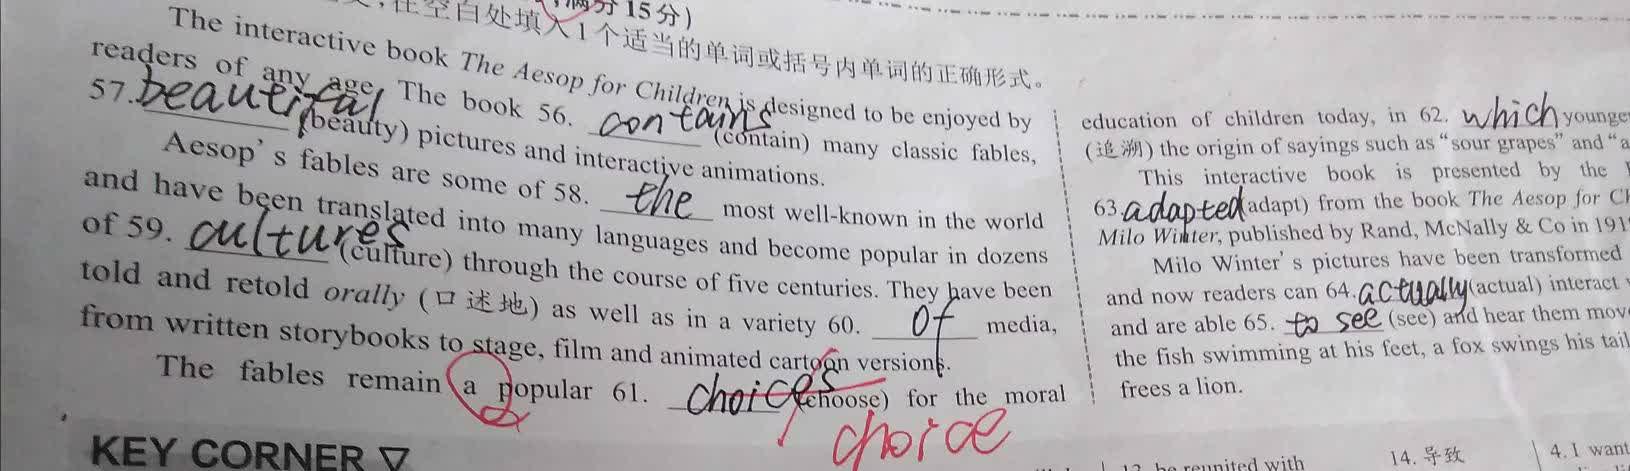 ,在空白处填入1个适当的单词或括号内单词的正确形式。
满分15分)
The interactive book The Aesop for Children is designed to be enjoyed by
readers of any age. The book 56. contains (contain) many classic fables,
57. beautifal (beauty) pictures and interactive animations.
Aesop's fables are some of 58. the most well-known in the world
and have been translated into many languages and become popular in dozens
of 59. cultures (culture) through the course of five centuries. They have been
told and retold orally (口述地) as well as in a variety 60. of media,
from written storybooks to stage, film and animated cartoon versions.
The fables remain a popular 61. choices (choose) for the moral
choice
KEY CORNER
education of children today, in 62. which younge
(追溯) the origin of sayings such as "sour grapes" and "a
This interactive book is presented by the
63. adapted (adapt) from the book The Aesop for Ch
Milo Winter, published by Rand, McNally & Co in 191
Milo Winter's pictures have been transformed
and now readers can 64. actually (actual) interact
and are able 65. to see (see) and hear them mov
the fish swimming at his feet, a fox swings his tail
frees a lion.
be reunited with
14. 导致
4. I want